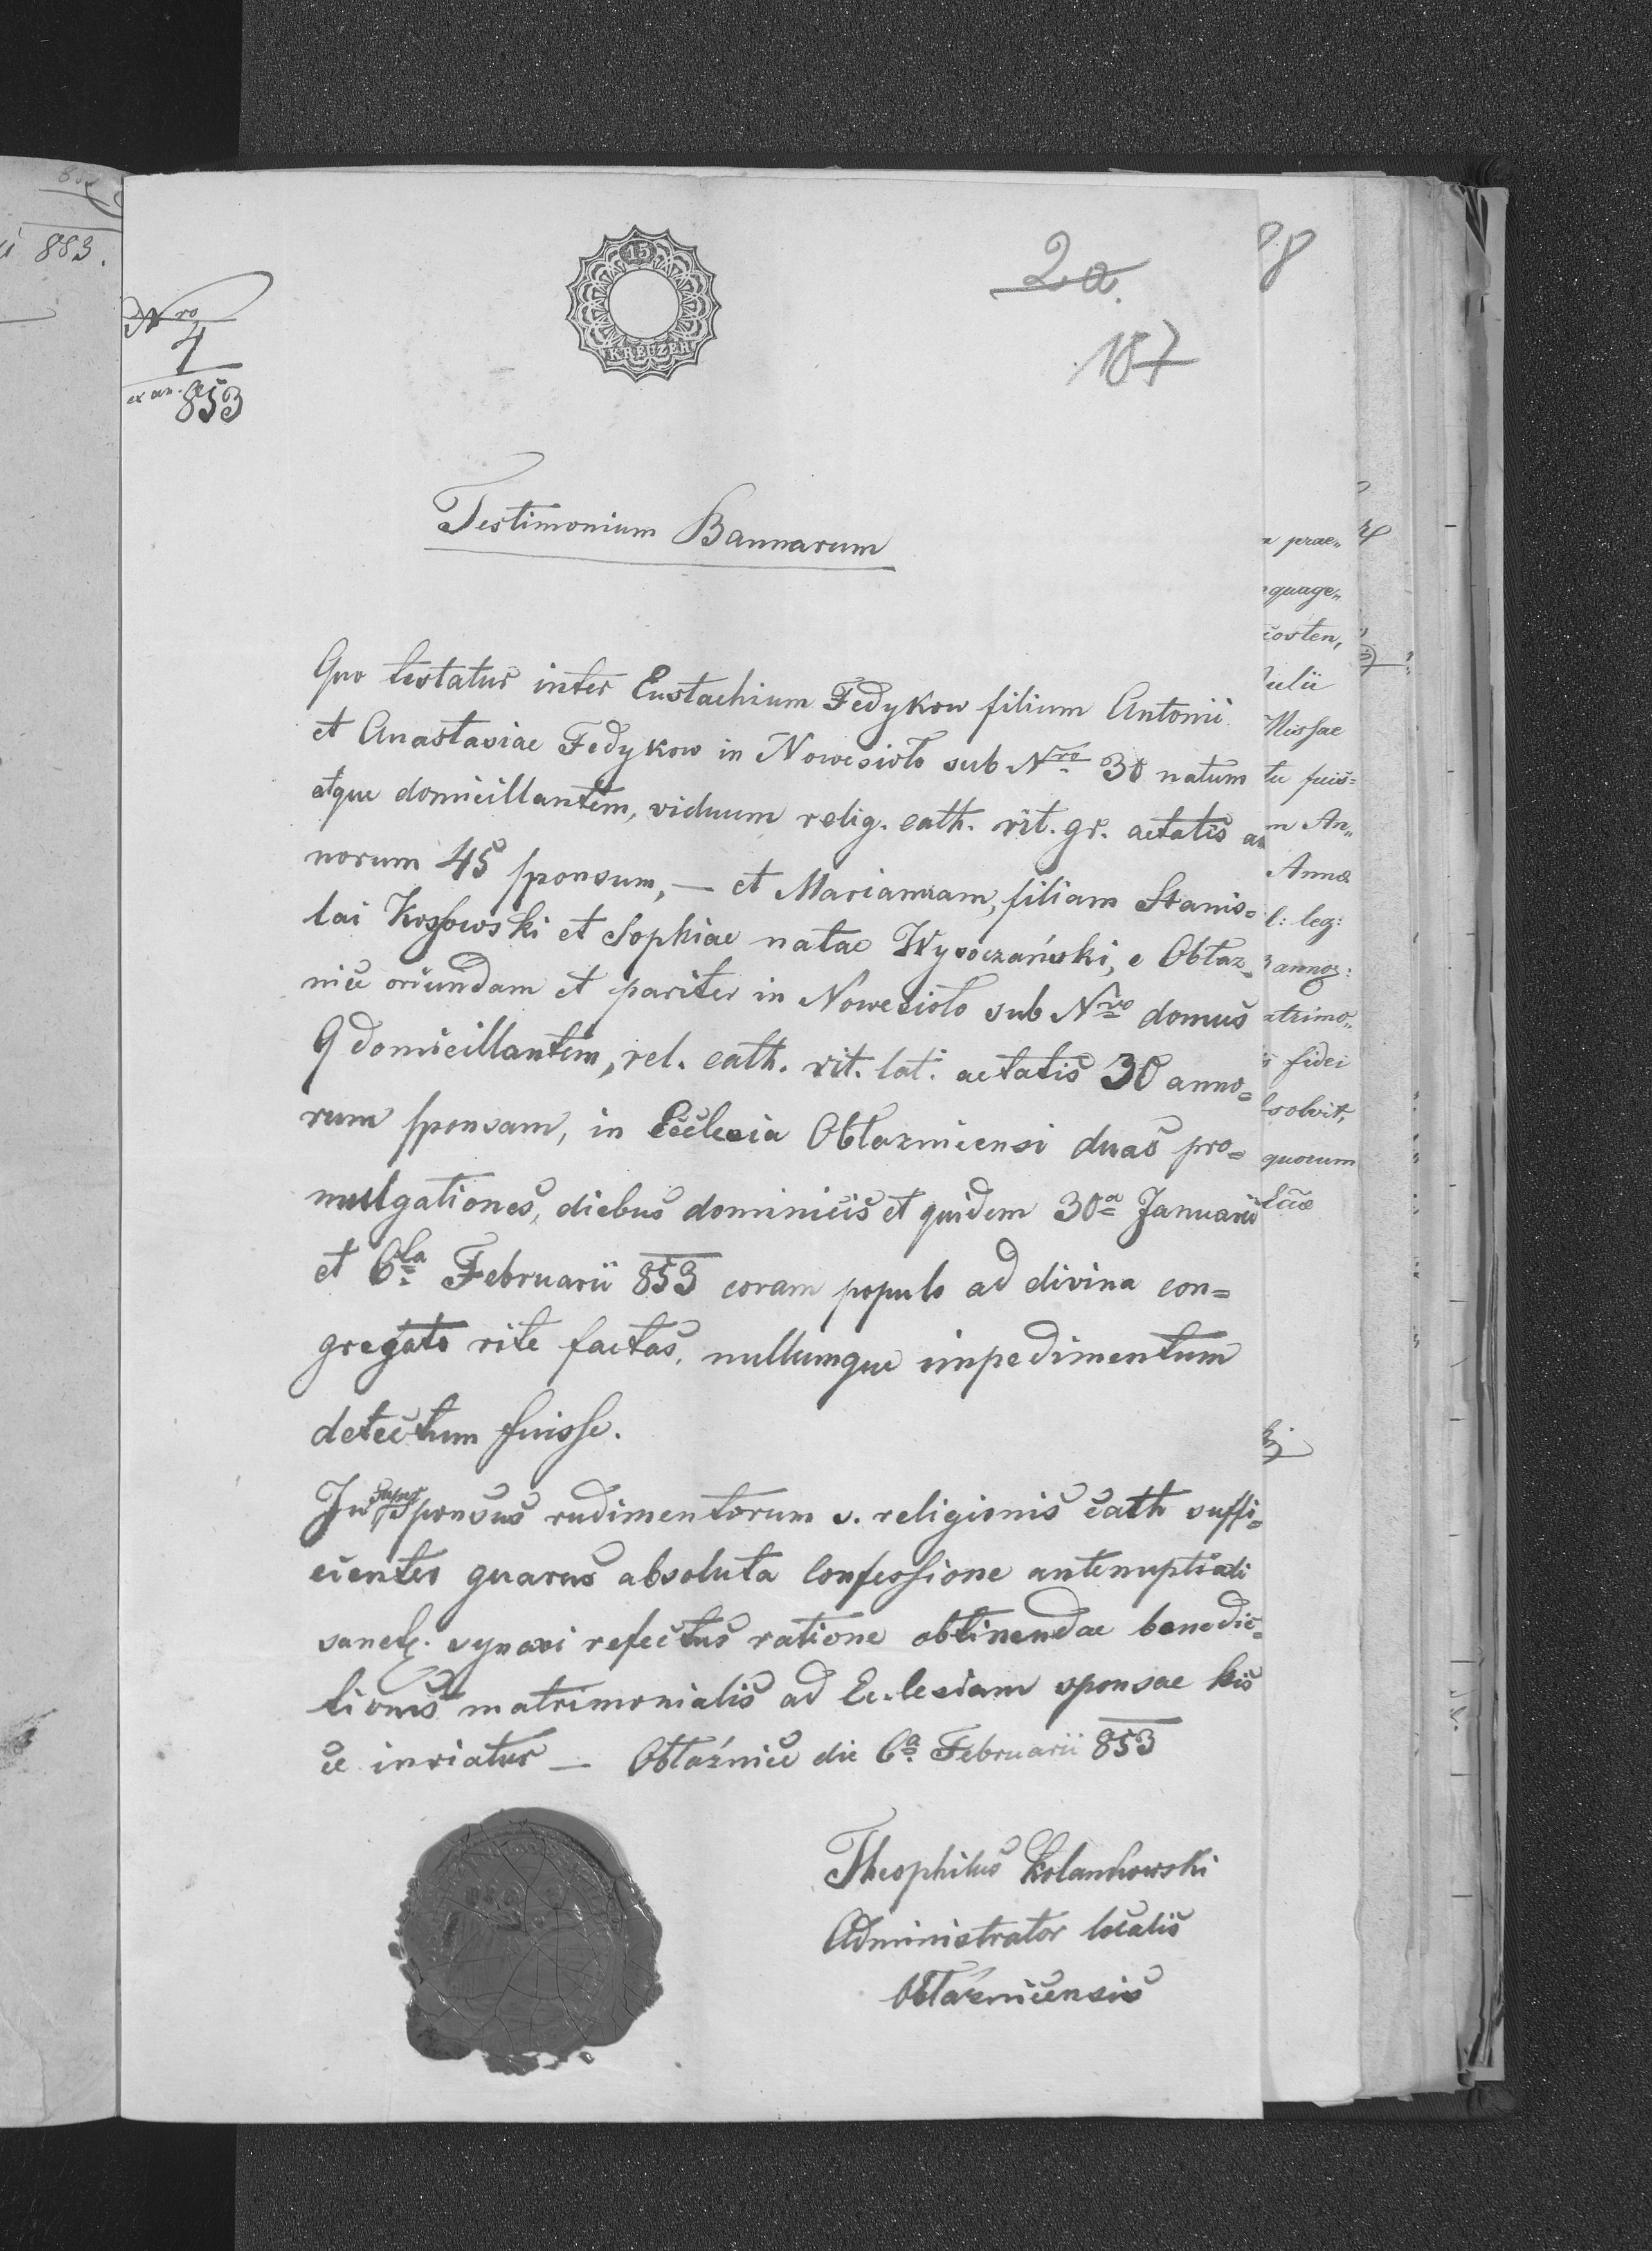 883.
Nro
4
ex an. 853
15
KREUZER
2a.
187
Testimonium Bannarum
Quo testatur inter Eustachium Fedykow filium Antonii
et Anastasiae Fedykow in Nowesioło sub Nro 30 natum
atque domicillantem, viduum relig. cath. rit. gr. aetatis an
norum 45 sponsum, — et Mariannam, filiam Stanis=
lai Kozłowski et Sophiae natae Wysoczański, e Obłaz=
nice oriundam et pariter in Nowesioło sub Nro domus
9 domicillantem, rel. cath. rit. lat. aetatis 30 anno=
rum sponsam, in Ecclesia Obłaznicensi duas pro=
mulgationes, diebus dominicis et quidem 30a Januarii
et 6ta Februarii 853 coram populo ad divina con=
gregato rite factas, nullumque impedimentum
detectum fuisse.
In super sponsus rudimentorum s. religionis cath suffi=
cienter gnarus absoluta confessione antenuptiali
sanct. synaxi refectus ratione obtinendae benedic=
tionis matrimonialis ad Ecclesiam sponsae his
ce inviatur — Obłaźnice die 6a Februarii 853
Theophilus Kolankowski
Administrator localis
Obłaźnicensis
prae„
quage„
costen,
Julii
Missae
tu fuis=
m An„
Anna
l: leg:
annor:
atrimo„
fidei
solvit,
quorum